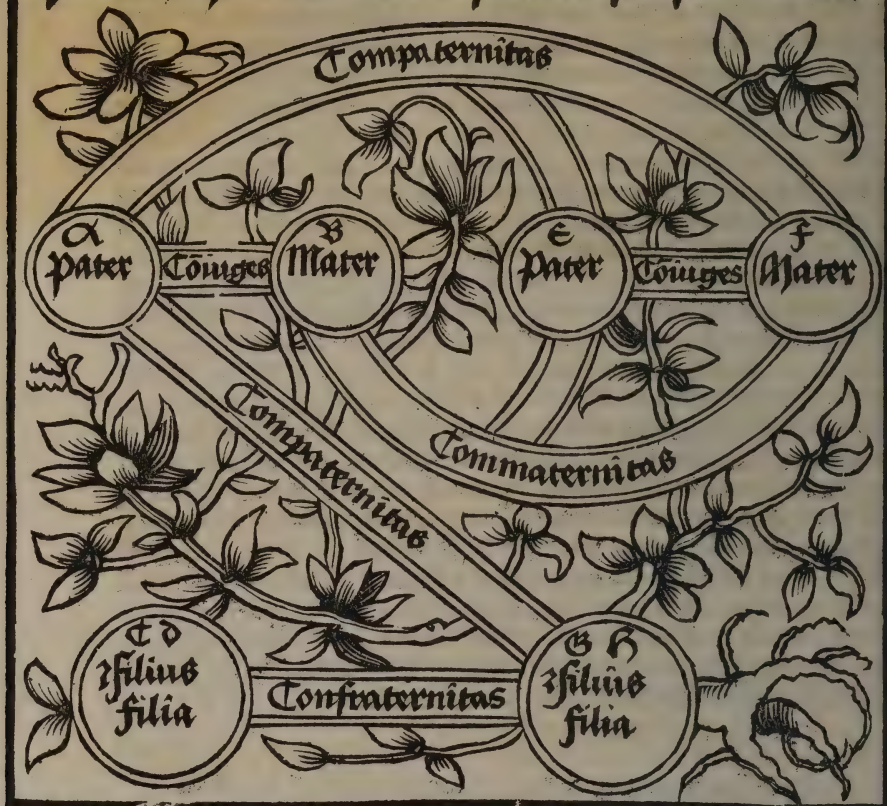 Compaternitas
A
Pater
Cōiuges
B
Mater
E
Pater
Cōiuges
F
Mater
Compaternitas
Commaternitas
C D
⁊filius
filia
Confraternitas
G H
⁊filiꝰs
filia